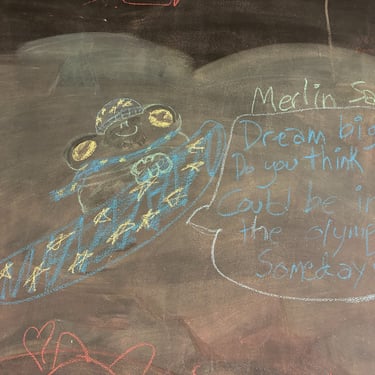 Merlin Sa
Dream big
Do you think
Could be in
the olymp
Someday